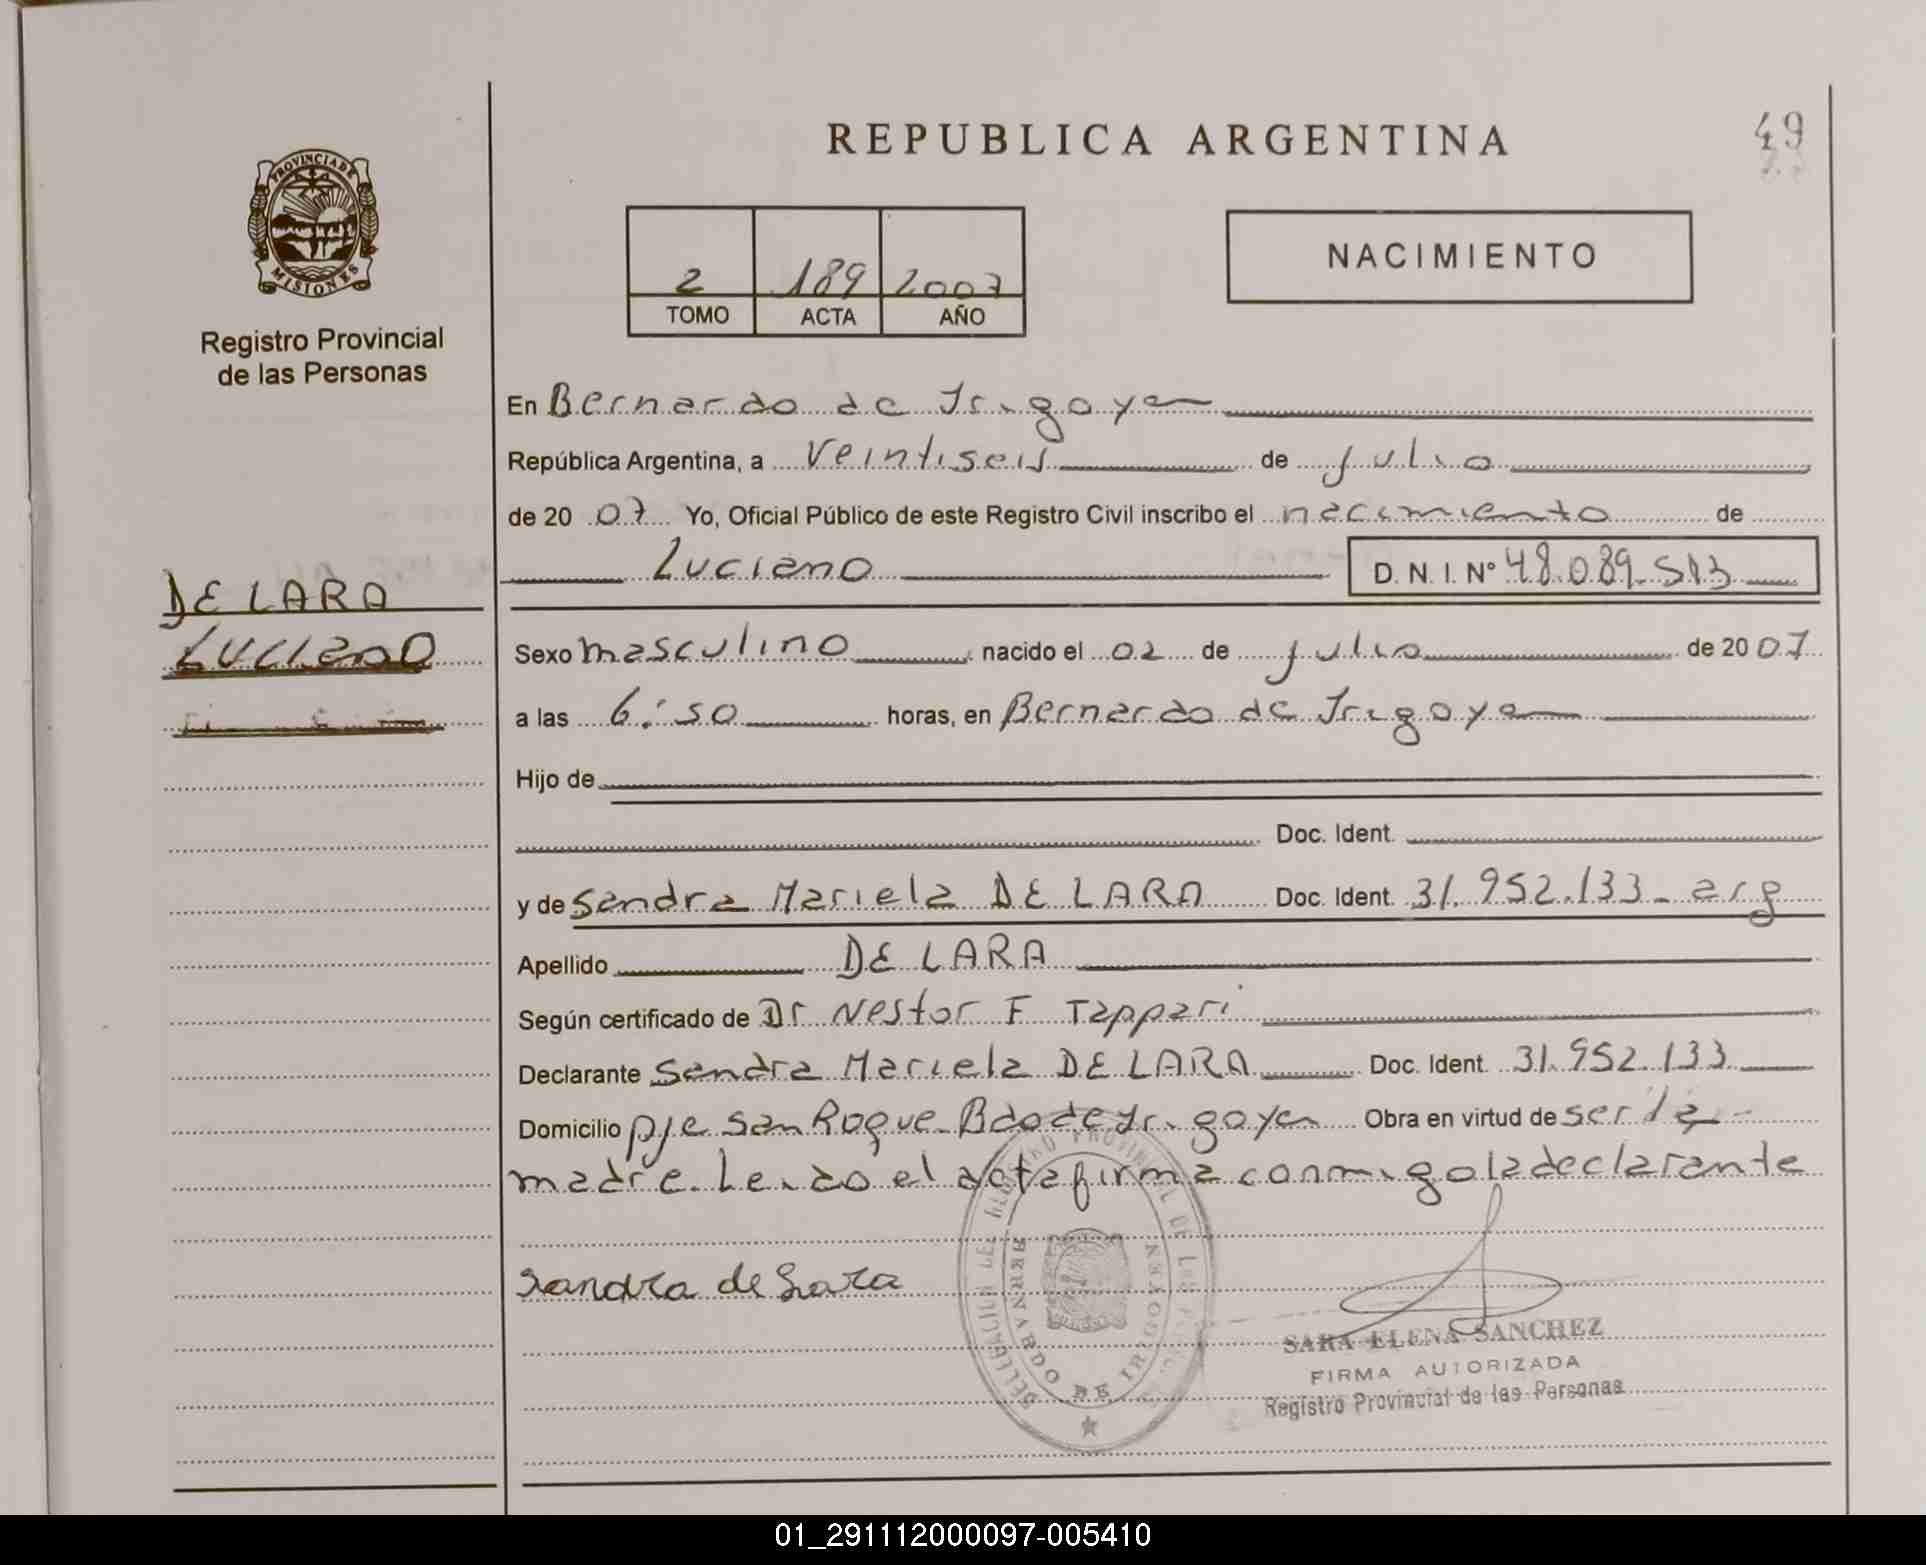 REPUBLICA ARGENTINA
49
PROVINCIA DE
MISIONES
Registro Provincial
de las Personas
2 189 2007
TOMO ACTA AÑO
NACIMIENTO
En Bernardo de Irigoyen
República Argentina, a veintiseis de julio
de 2007 Yo, Oficial Público de este Registro Civil inscribo el nacimiento de
Luciano D. N. I. Nº 48.089.513
DE LARA
Luciano
Sexo masculino nacido el 02 de julio de 2007
a las 6:50 horas, en Bernardo de Irigoyen
Hijo de
Doc. Ident.
y de Sandra Mariela DE LARA Doc. Ident. 31.952.133 - arg
Apellido DE LARA
Según certificado de Dr Nestor F Tappari
Declarante Sandra Mariela DE LARA Doc. Ident. 31.952.133
Domicilio pje San Roque Bdo de Irigoyen Obra en virtud de ser la
madre. Leido el acta firma conmigo la declarante
Sandra de Lara
DELEGACION DEL REGISTRO PROVINCIAL DE LAS
BERNARDO DE IRIGOYEN
SARA ELENA SANCHEZ
FIRMA AUTORIZADA
Registro Provincial de las Personas
01_291112000097-005410